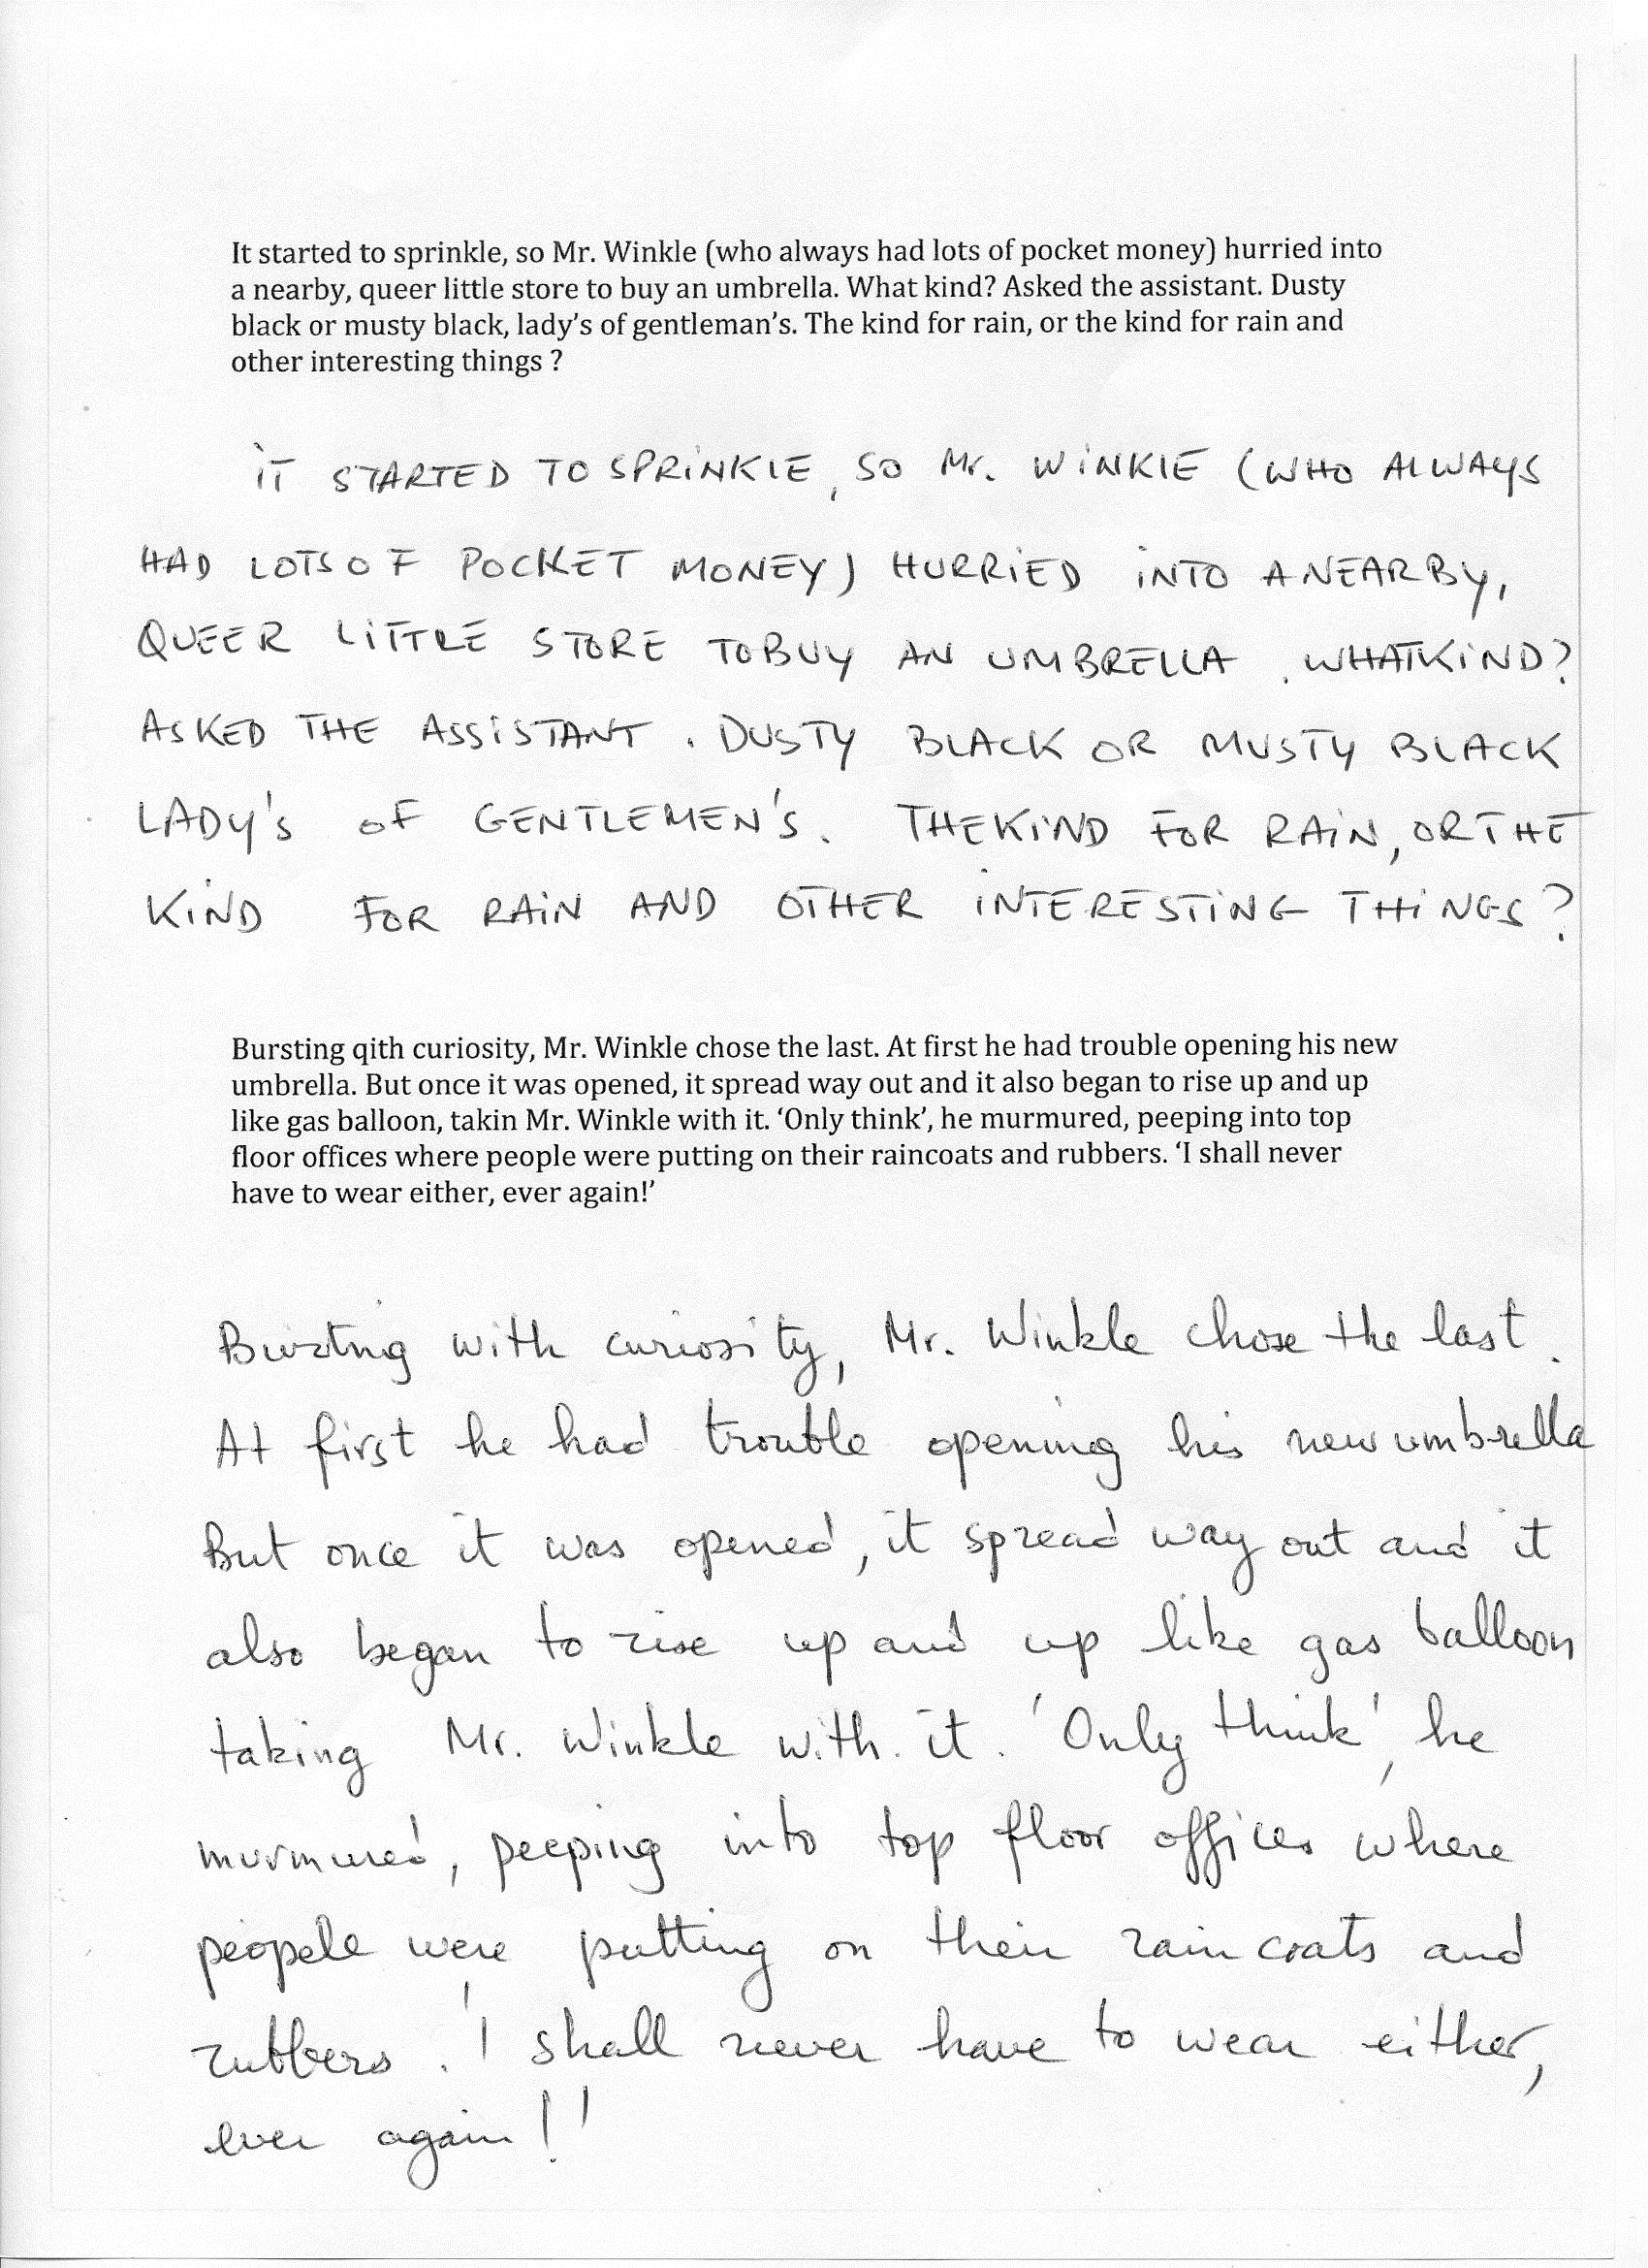 It started to sprinkle, so Mr. Winkle (who always had lots of pocket money) hurried into
a nearby, queer little store to buy an umbrella. What kind? Asked the assistant. Dusty
black or musty black, lady's of gentleman's. The kind for rain, or the kind for rain and
other interesting things ?
IT STARTED TO SPRINKLE, SO Mr. WINKLE (WHO ALWAYS
HAD LOTS OF POCKET MONEY) HURRIED INTO A NEARBY,
QUEER LITTLE STORE TO BUY AN UMBRELLA. WHAT KIND?
ASKED THE ASSISTANT. DUSTY BLACK OR MUSTY BLACK
LADY'S OF GENTLEMEN'S. THE KIND FOR RAIN, OR THE
KIND FOR RAIN AND OTHER INTERESTING THINGS?
Bursting qith curiosity, Mr. Winkle chose the last. At first he had trouble opening his new
umbrella. But once it was opened, it spread way out and it also began to rise up and up
like gas balloon, takin Mr. Winkle with it. 'Only think', he murmured, peeping into top
floor offices where people were putting on their raincoats and rubbers. 'I shall never
have to wear either, ever again!'
Burstng with curiosity, Mr. Winkle chose the last.
At first he had trouble opening his new umbrella
But once it was opened, it spread way out and it
also began to rise up and up like gas balloon
taking Mr. Winkle with it. 'Only think', he
murmured, peeping into top floor offices where
peopele were putting on their raincoats and
rubbers. 'I shall never have to wear either,
ever again!'